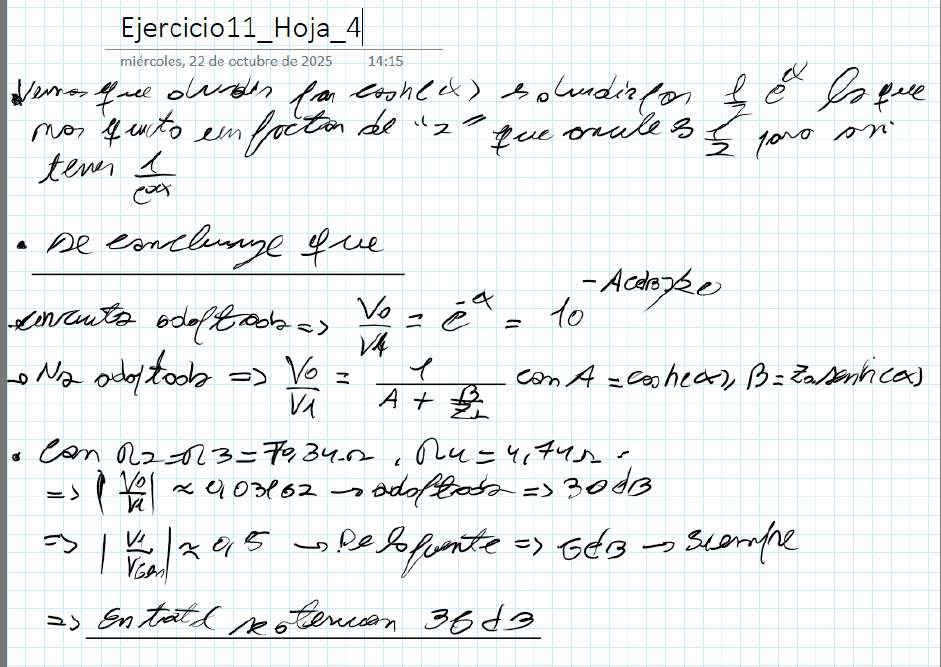 Ejercicio11_Hoja_4
miércoles, 22 de octubre de 2025 14:15
Vemos que dividir por cosh(α) es dividir por 1/2 e^α lo que
nos quita un factor de "2" que anule 1/2 para así
tener 1/e^α
• Se concluye que
circuito adaptado => Vo/V1 = e^-α = 10^-A(dB)/20
→ No adaptado => Vo/V1 = 1/(A + B/ZL) con A = cosh(α), B = Za senh(α)
• Con R2=R3=70,34Ω, R4=4,74Ω.
=> |Vo/V1| ≈ 0,03162 → adaptado => 30dB
=> |V1/VGen| ≈ 0,5 → De la fuente => 6dB → siempre
=> En total se atenúan 36dB